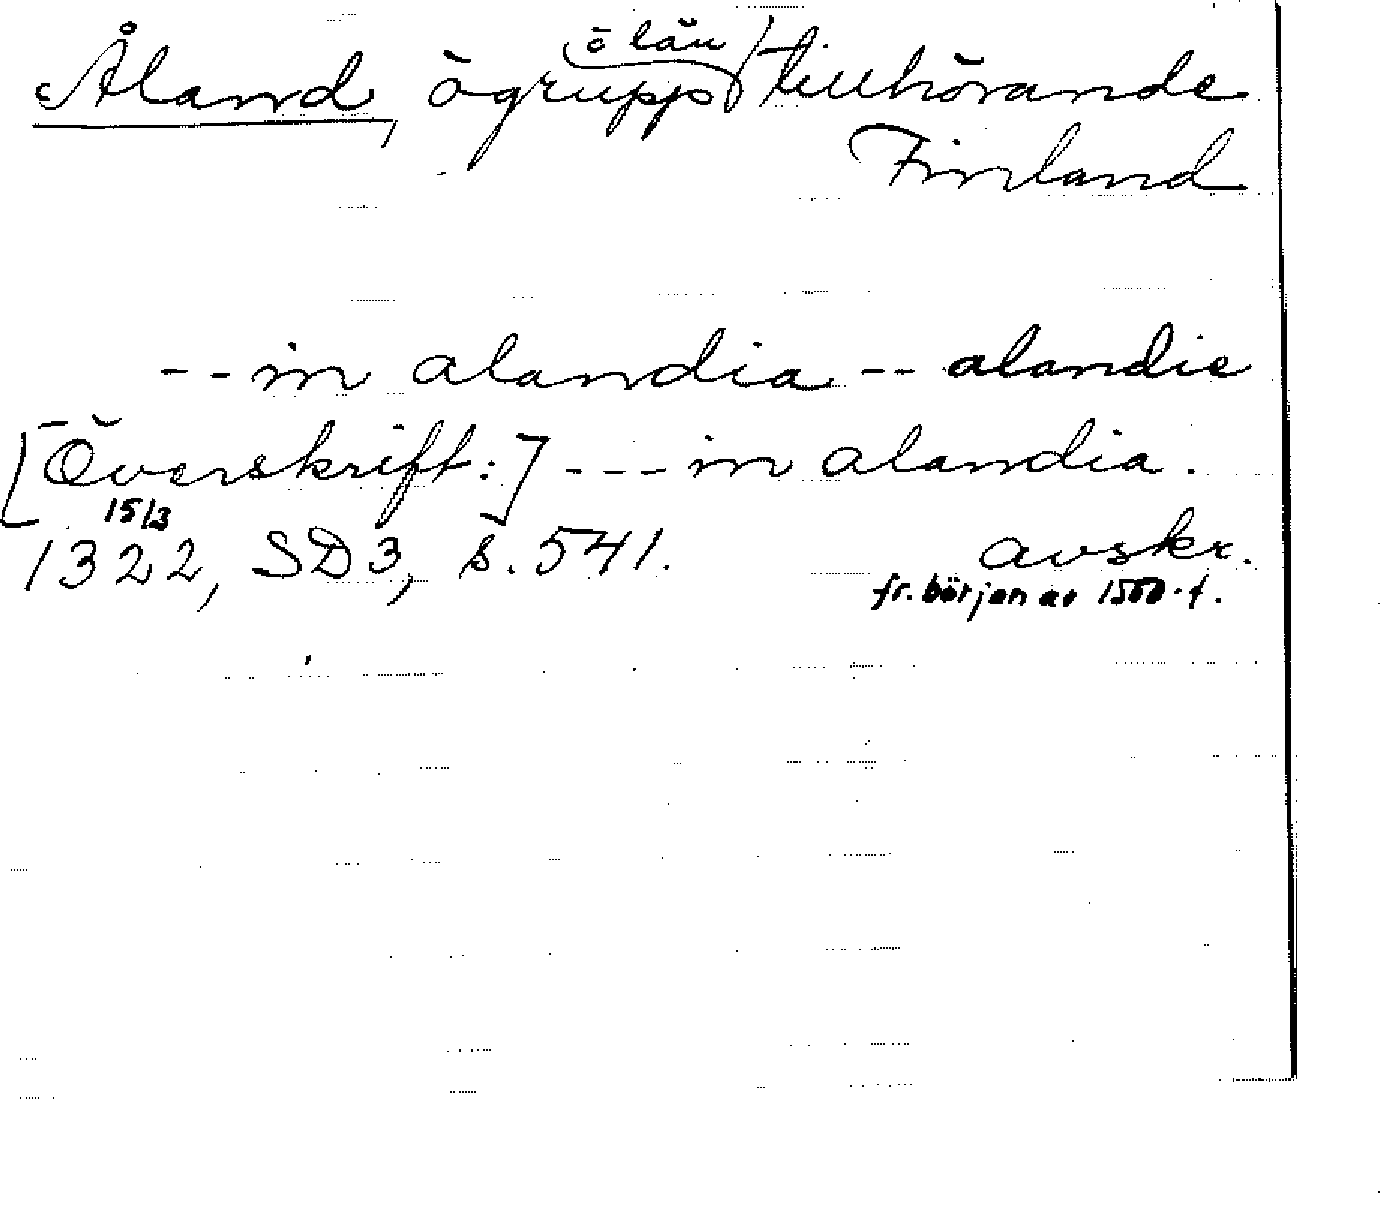 Åland, ögrupp (o län) tillhörande
Finland
-- in alandia -- alandie
[Överskrift:] --- in alandia.
15/3
1322, SD3, s. 541. avskr.
fr. början av 1500-t.